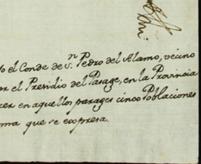 el Conde de S.n Pedro del Alamo, vecino
el Presidio del Parage, en la Provincia
cer en aquellos parages cinco Poblaciones
ma que se expresa